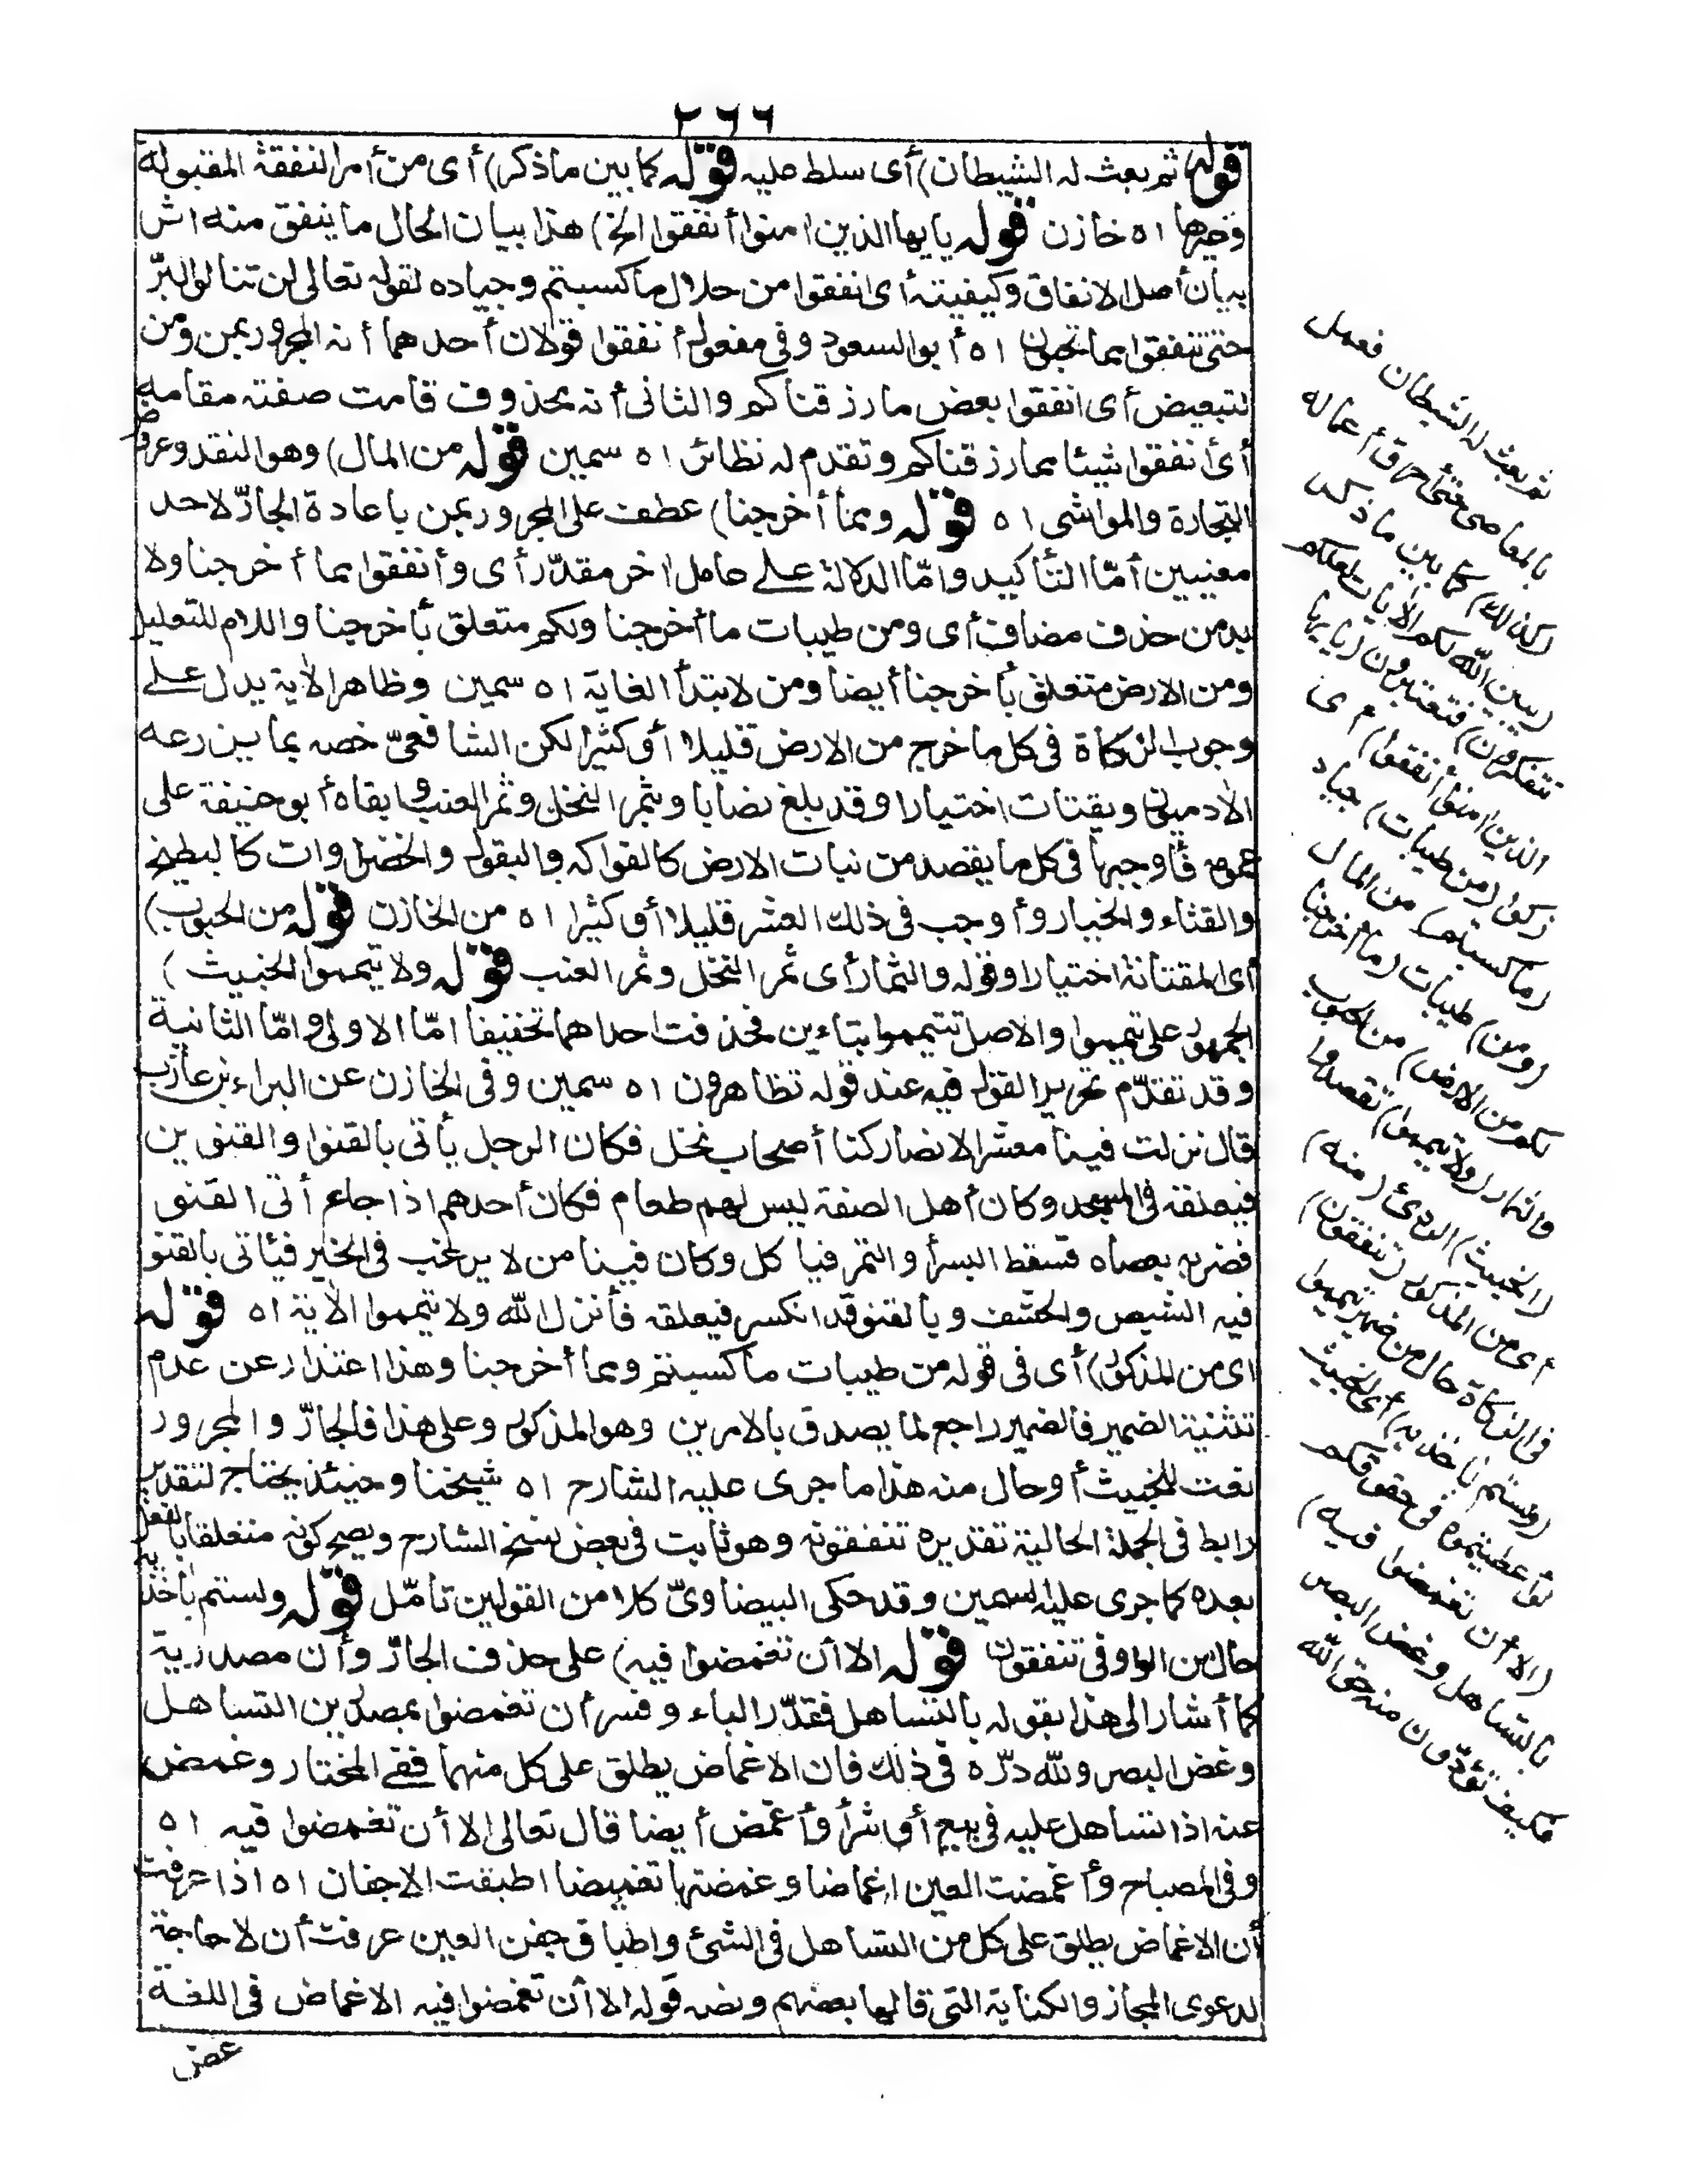 ٢٦٦
قوله ثم بعث له الشيطان) أى سلط عليه قوله كما بين ماذكر) أى من أمر النفقة المقبولة
وغيرها اه خازن قوله يايها الذين امنوا أنفقوا الخ) هذا بيان لحال ما ينفق منه اثر
بيان أصل الانفاق وكيفيته أى انفقوا من حلال ما كسبتم وجياده لقوله تعالى لن تنالوا البرّ
حتى تنفقوا مما تحبون اه أبو السعود وفى مفعول أنفقوا قولان أحدهما أنه المجرور بمن ومن
للتبعيض أى انفقوا بعض ما رزقناكم والثانى أنه محذوف قامت صفته مقامه
أى أنفقوا شيئا مما رزقناكم وتقدم له نظائر اه سمين قوله من المال) وهو النقد وعروض
التجارة والمواشى اه قوله ومما أخرجنا) عطف على المجرور بمن باعادة الجارّ لاحد
معنيين أمّا التأكيد وامّا الدلالة على عامل اخر مقدّر أى وأنفقوا مما أخرجنا ولا
بد من حذف مضاف أى ومن طيبات ما أخرجنا ولكم متعلق بأخرجنا واللام للتعليل
ومن الارض متعلق بأخرجنا أيضا ومن لابتدأ الغاية اه سمين وظاهر الاٰية يدل على
وجوب الزكاة فى كل ما خرج من الارض قليلا أو كثيرا لكن الشافعىّ خصه بما يزرعه
الاٰدميّون ويقتات اختيارا وقد بلغ نصابا وبثمر النخل وثمر العنب وابقاه أبو حنيفة على
عمومه فأوجبها فى كل ما يقصد من نبات الارض كالفواكه والبقول والخضراوات كالبطيخ
والقثاء والخيار وأوجب فى ذلك العشر قليلا أو كثيرا اه من الخازن قوله من الحبوب)
أى المقتاتة اختيارا وقوله والثمار أى ثمر النخل وثمر العنب قوله ولا تيمموا الخبيث)
الجمهور على تيمموا والاصل تتيمموا بتاءين فحذفت احداهما تخفيفا امّا الاولى وامّا الثانية
وقد تقدّم تحرير القول فيه عند قوله تظاهرون اه سمين وفى الخازن عن البراء بن عازب
قال نزلت فينا معشر الانصار كنا أصحاب نخل فكان الرجل يأتى بالقنوا والقنوين
فيعلقه فى المسجد وكان أهل الصفة ليس لهم طعام فكان أحدهم اذا جاع أتى القنو
فضربه بعصاه فسقط البسر أو التمر فيا كل وكان فينا من لا يرغب فى الخير فيئاتى بالقنو
فيه الشيص والحشف وبالقنو قد انكسر فيعلقه فأنزل الله ولا تيمموا الاٰية اه قوله
اى من المذكور) أى فى قوله من طيبات ما كسبتم ومما أخرجنا وهذا اعتذار عن عدم
تثنية الضمير فالضمير راجع لما يصدق بالامرين وهو المذكور وعلى هذا فالجارّ والمجرور
نعت للخبيث أو حال منه هذا ما جرى عليه الشارح اه شيخنا وحينئذ يحتاج لتقدير
رابط فى الجملة الحالية تقديره تنفقونه وهو ثابت فى بعض نسخ الشارح ويصح كونه متعلقا بالفعل
بعده كما جرى عليه السمين وقد حكى البيضاوىّ كلا من القولين تامّل قوله ولستم باٰخذيه
حال من الواو فى تنفقون قوله الا أن تغمضوا فيه) على حذف الجارّ وأن مصدرية
كما أشار الى هذا بقوله بالتساهل فقدّر الباء وفسر أن تغمضوا بمصدرين التساهل
وغض البصر ولله درّه فى ذلك فان الاغماض يطلق على كل منهما ففى المختار وغمض
عنه اذا تساهل عليه فى بيع أو شرأ وأغمض أيضا قال تعالى الا أن تغمضوا فيه اه
وفى المصباح وأغمضت العين اغماضا وغمضتها تغميضا اطبقت الاجفان اه اذا عرفت
أن الاغماض يطلق على كل من التساهل فى الشئ واطباق جفن العين عرفت أن لا حاجة
لدعوى المجاز والكناية التى قالها بعضهم ونصه قوله الا أن تغمضوا فيه الاغماض فى اللغة
غض
ثم بعث له الشيطان فعمل
بالمعاصى حتى أحرق أعماله
(كذلك) كما بين ما ذكر
(يبين الله لكم الاٰيات لعلكم
تتفكرون) فتعتبرون (يايها
الذين امنوا أنفقوا) أى
زكوا (من طيبات) جياد
(ما كسبتم) من المال
(ومن) طيبات (ما أخرجنا
لكم من الارض) من الحبوب
والثمار (ولا تيمموا) تقصدوا
(الخبيث) الردئ (منه)
أى من المذكور (تنفقون)
فى الزكاة حال من ضمير تيمموا
(ولستم باٰخذيه) أى الخبيث
لو أعطيتموه فى حقوقكم
(الا أن تغمضوا فيه)
بالتساهل وغض البصر
فكيف تؤدّون منه حق الله